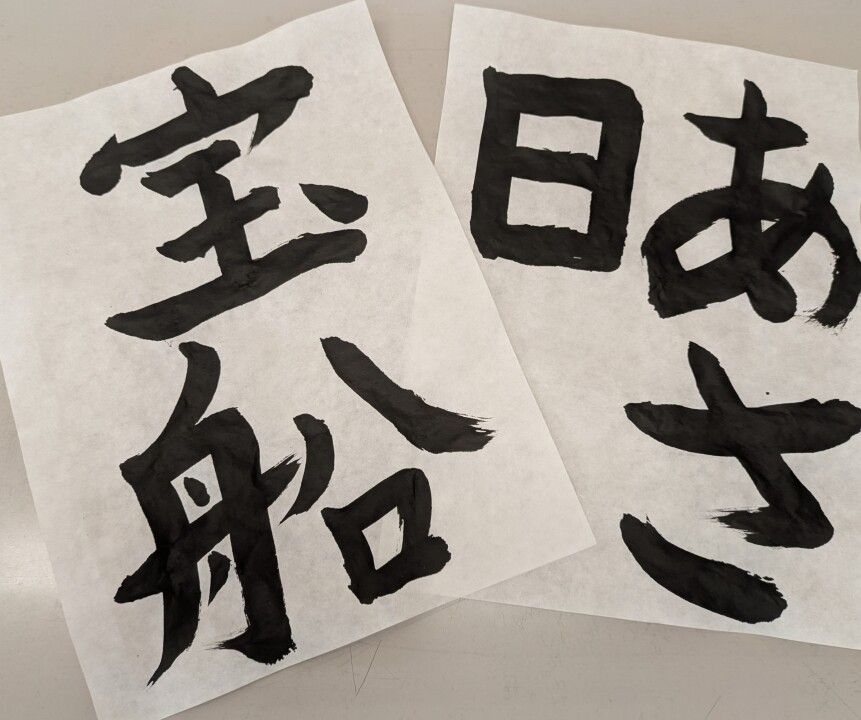 宝船
あさ
日